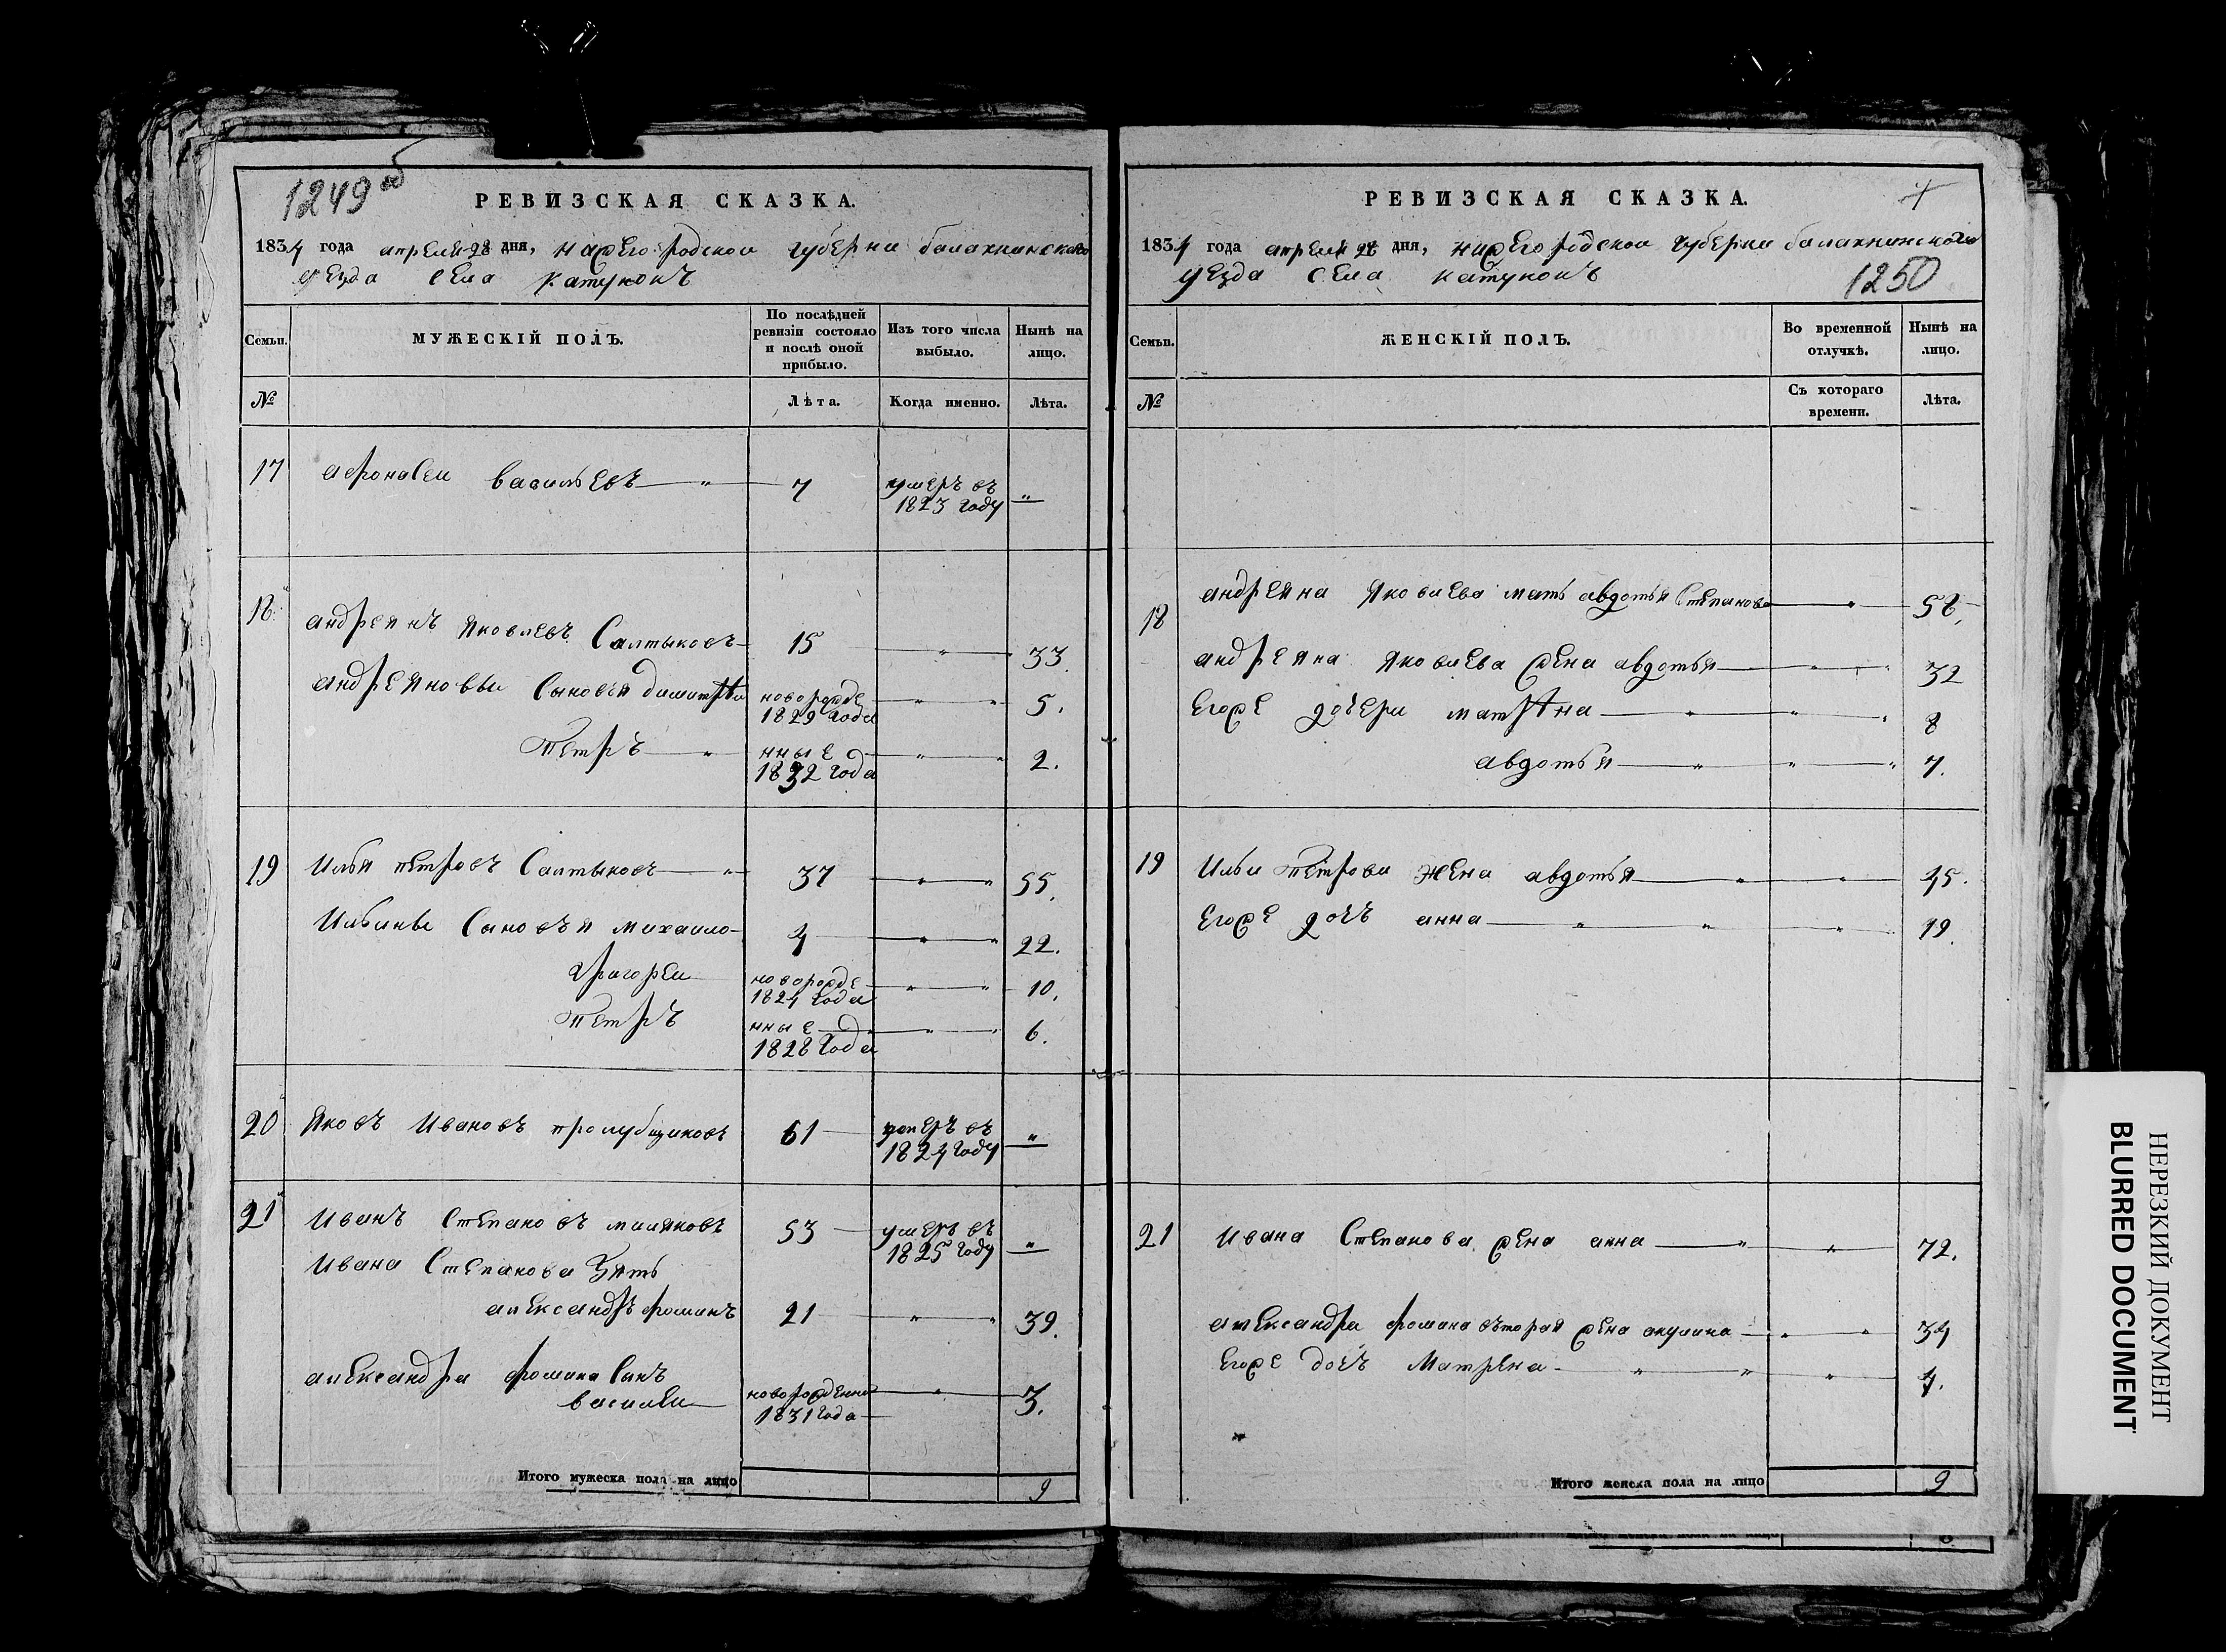 1249 об
РЕВИЗСКАЯ СКАЗКА.
1834 года апреля 28 дня, нижегородской губерни балахнинского
уезда села катунокъ
Семьи. МУЖЕСКІЙ ПОЛЪ. По послѣдней ревизіи состояло и послѣ оной прибыло. Изъ того числа выбыло. Нынѣ на лицо.
№ Лѣта. Когда именно. Лѣта.
17 афонасеи васильевъ 7 умеръ въ 1823 году
18 андреянъ яковлевъ Салтыковъ 15 33.
андреяновы сыновья димитри новорожде 1829 года 5.
петръ нные 1832 года 2.
19 Илья петровъ Салтыковъ 37 55.
Ильины Сыновъя михаило 4 22.
григореи новорожде 1824 года 10.
петръ нные 1828 года 6.
20 яковъ Ивановъ пролубщиковъ 61 умеръ въ 1824 году
21 Иванъ Степановъ миляковъ 53 умеръ въ 1825 году
Ивана Степанова зять
александръ фоминъ 21 39.
александра фомина сынъ
василеи новорожденно 1831 года 3.
Итого мужеска пола на лицо 9
РЕВИЗСКАЯ СКАЗКА.
1834 года апреля дня, нижегородской губерни балахнинского
уезда села катунокъ
1250
Семьи. ЖЕНСКІЙ ПОЛЪ. Во временной отлучкѣ. Нынѣ на лицо.
№ Съ котораго времени. Лѣта.
18 андреяна яковлева мать авдотья Степанова 58.
андреяна яковлева жена авдотья 32
Егоже дочери матрена 8
авдотья 7.
19 Ильи Петрова жена авдотья 45.
Егоже дочъ анна 19.
21 Ивана Степанова жена анна 72.
александра фомина въторая жена акулина 34
Егоже дочъ Матрена 4.
Итого женска пола на лицо 9
НЕРЕЗКИЙ ДОКУМЕНТ
BLURRED DOCUMENT